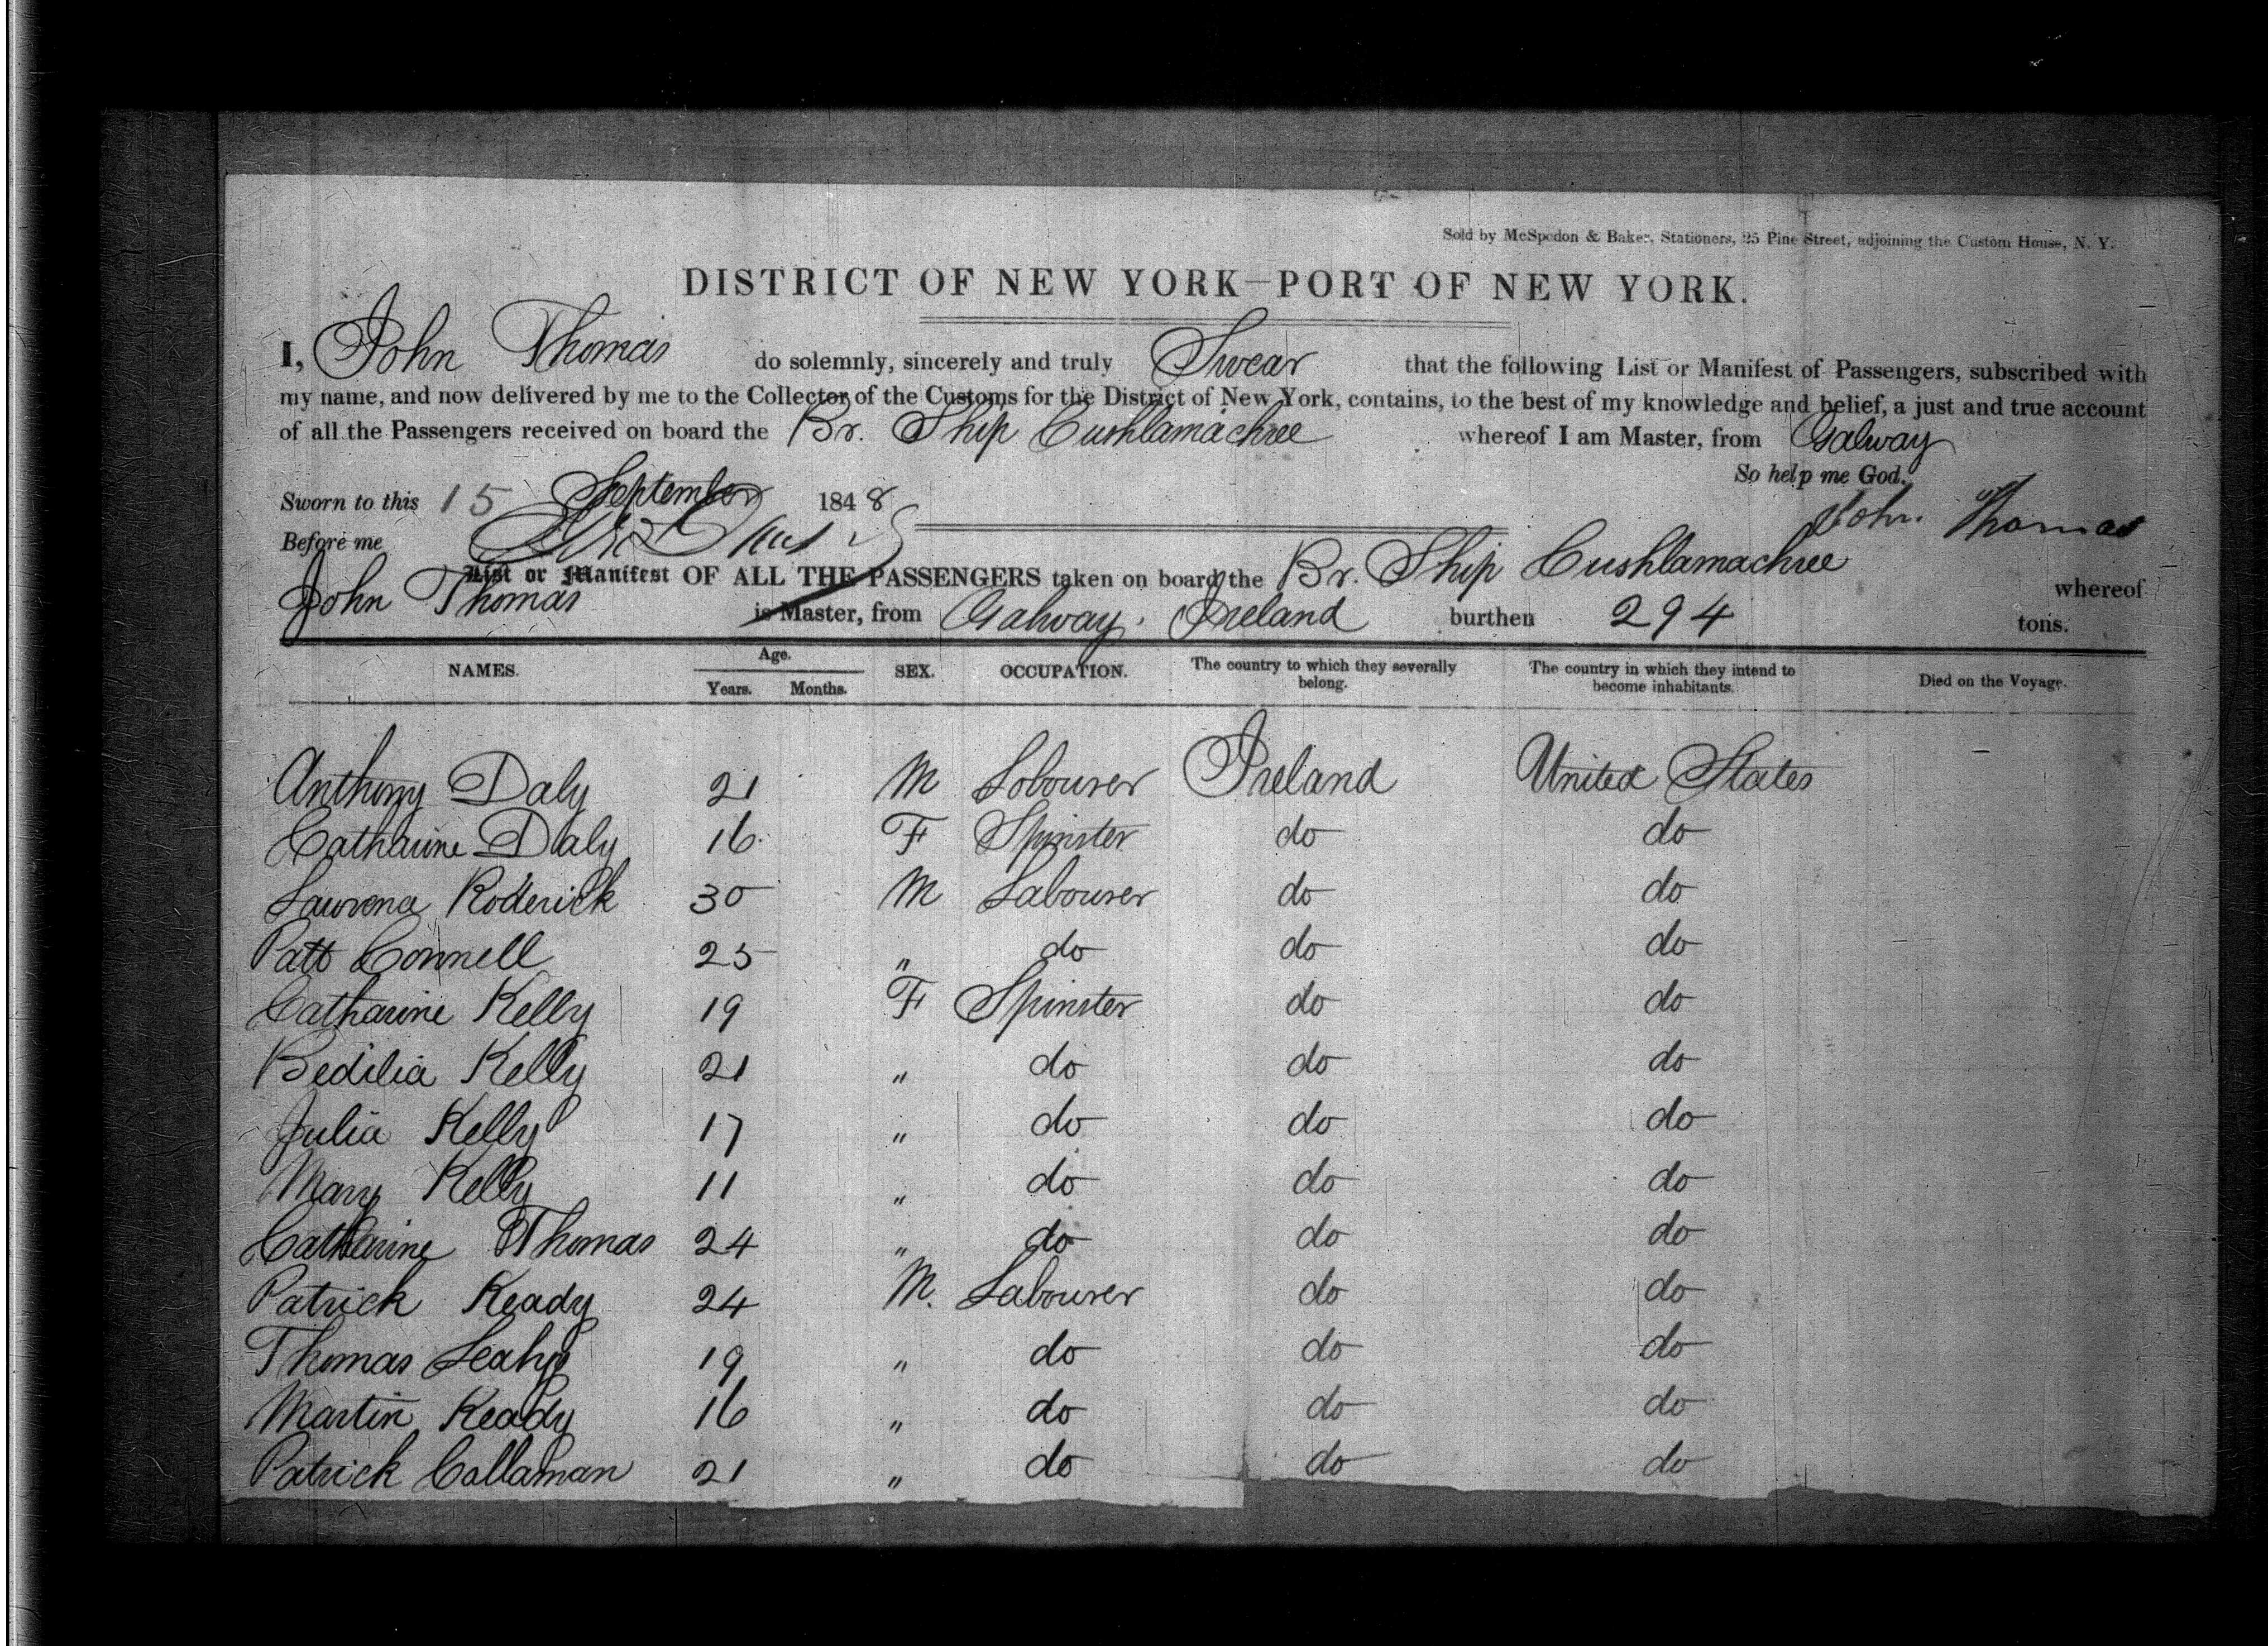 Sold by McSpedon & Baker, Stationers, 25 Pine Street, adjoining the Custom House, N. Y.
DISTRICT OF NEW YORK—PORT OF NEW YORK.
I, John Thomas do solemnly, sincerely and truly Swear that the following List or Manifest of Passengers, subscribed with
my name, and now delivered by me to the Collector of the Customs for the District of New York, contains, to the best of my knowledge and belief, a just and true account
of all the Passengers received on board the Br. Ship Cushlamachree whereof I am Master, from Galway
So help me God.
Sworn to this 15 September 1848 John Thomas
Before me
List or Manifest OF ALL THE PASSENGERS taken on board the Br. Ship Cushlamachree whereof
John Thomas is Master, from Galway, Ireland burthen 294 tons.
NAMES. Age. Years. Months. SEX. OCCUPATION. The country to which they severally belong. The country in which they intend to become inhabitants. Died on the Voyage.
Anthony Daly 21 M Lobourer Ireland United States
Catharine Daly 16 F Spinster do do
Laurena Roderick 30 M Labourer do do
Patt Connell 25 " do do do
Catharine Kelly 19 F Spinster do do
Bedilia Kelly 21 " do do do
Julia Kelly 17 " do do do
Mary Kelly 11 " do do do
Catharine Thomas 24 " do do do
Patrick Keady 24 M. Labourer do do
Thomas Leahy 19 " do do do
Martin Keady 16 " do do do
Patrick Callaman 21 " do do do